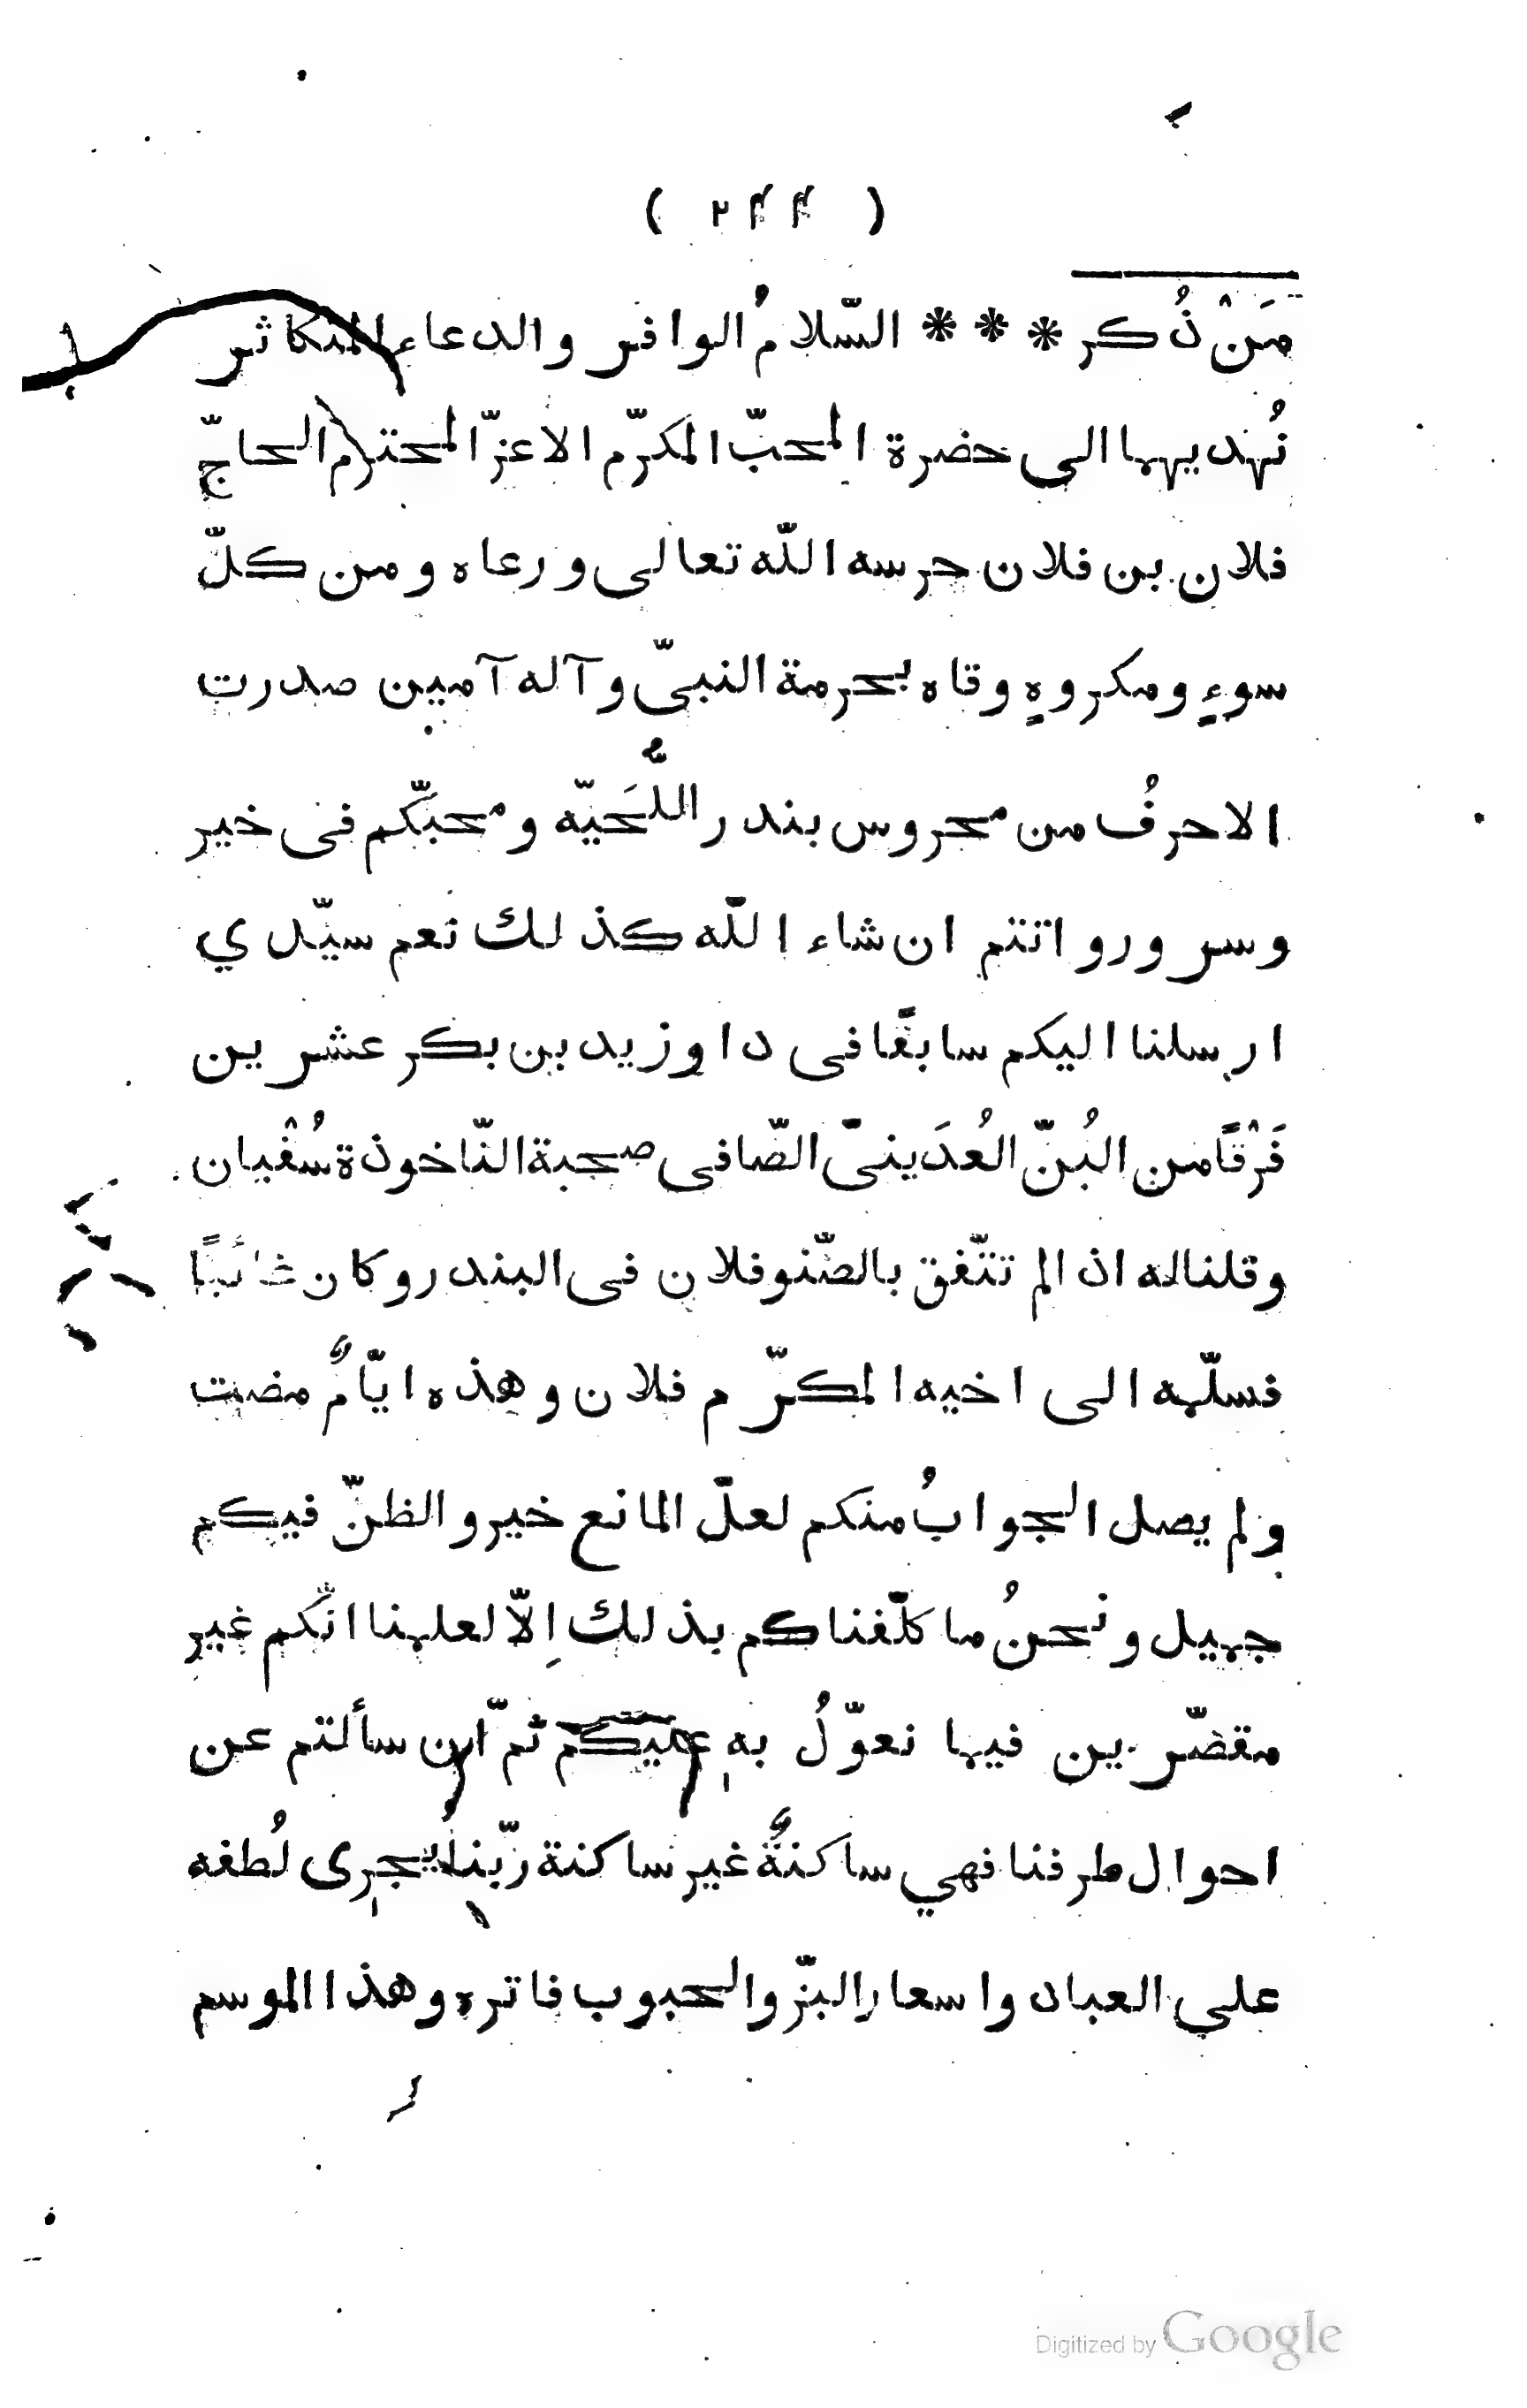 ( ٢٤٤ )
مَنْ ذُكر * * * السّلامُ الوافر والدعاء المتكاثر
نُهديهما الى حضرة المحبّ المكرّم الاعزّ المحترم الحاجّ
فلان بن فلان حرسه اللّه تعالى ورعاه ومن كلّ
سوءٍ ومكروهٍ وقاه بحرمة النبىّ وآله آمين صدرت
الاحرفُ من محروس بندر اللُّحَيّه ومحبّكم فى خير
وسرور وانتم ان شاء اللّه كذلك نعم سيّدي
ارسلنا اليكم سابقًا فى داو زيد بن بكر عشرين
فَرْقًا من البُنّ العُدَينىّ الصّافى صحبة النّاخوذة سُفْيان
وقلنا له اذا لم تتّفق بالصّنو فلان فى البندر وكان غائبًا
فسلّمه الى اخيه المكرّم فلان وهذه ايّامٌ مضت
ولم يصل الجوابُ منكم لعلّ المانع خير والظنّ فيكم
جميل ونحنُ ما كلّفناكم بذلك اِلّا لعلمنا انّكم غير
مقصّرين فيما نعوّلُ بهٖ عليكم ثمّ ان سألتم عن
احوال طرفنا فهي ساكنةٌ غير ساكنة ربّنا يجرى لُطفه
علي العباد واسعار البزّ والحبوب فاتره وهذا الموسم
Digitized by Google